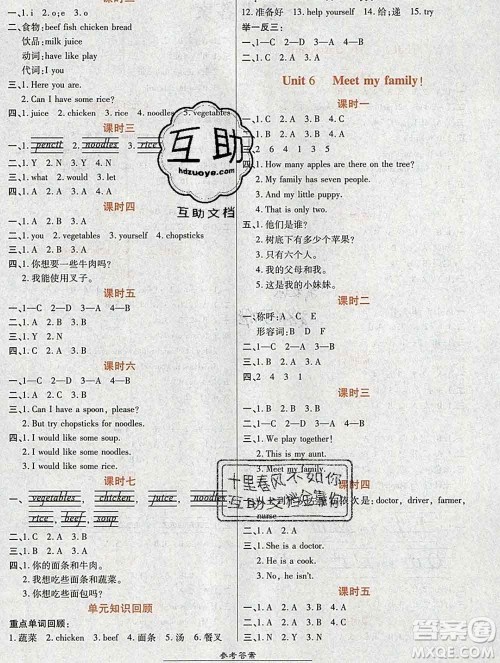 一、1. i 2. o;e 3. o
二、食物: beef fish chicken bread
饮品: milk juice
动词: have like play
代词: I you
三、1. Here you are.
2. Can I have some rice?
四、1. juice 2. chicken 3. noodles 4. vegetables
课时三
一、1. pencil 2. noodles 3. rice
二、1. Y 2. N 3. N
三、1. what 2. would 3. like
四、1. B 2. A
课时四
一、1. you 2. vegetables 3. yourself 4. chopsticks
二、1—C 2—D 3—A 4—B
三、1. A 2. B 3. B
四、1. 你想要一些牛肉吗?
2. 我能使用叉子。
课时五
一、1—C 2—A 3—D 4—B
二、1. A 2. A 3. B
课时六
一、1—C 2—D 3—A 4—B
二、1. A 2. B 3. B
三、1. Can I have a spoon, please?
2. But try chopsticks for noodles.
四、1. I would like some soup.
2. I would like some noodles.
3. I would like some rice.
课时七
一、vegetables chicken juice noodles
rice beef soup
二、1. N 2. N 3. Y
三、1. B 2. A 3. A
四、1. 你的面条和牛肉。
2. 我想吃些面条和蔬菜。
3. 你想吃些面条吗?
单元知识回顾
重点单词回顾:
1. 蔬菜 2. chicken 3. beef 4. 面条 5. 汤 6. 餐叉
12. 准备好 13. help yourself 14. 给;递 15. try
举一反三:
1. C 2. B 3. A
Unit 6 Meet my family!
课时一
一、1—C 2—A 3—D 4—B
二、1. B 2. A 3. B
三、2 6 4 1 3 5
四、1. How many apples are there on the tree?
2. My family has seven people.
3. And my little puppy.
4. That is only two.
五、1. 他们是谁?
2. 树底下有多少个苹果?
3. 只有六个人。
4. 我的父母和我。
5. 这是我的小妹妹。
课时二
一、称呼: A C E
形容词: B D F
二、1—C 2—A 3—D 4—B
三、1. B 2. A 3. B
四、2 4 3 1 5
课时三
一、1. B 2. A 3. A
二、1. B 2. A 3. B
三、1. We play together!
2. This is my aunt.
3. Meet my family.
课时四
次是: doctor, driver, farmer,
nurse
2. She is a doctor.
3. He is a cook.
4. No, he isn't.
课时五
一、1. B 2. A 3. A
二、1—C 2—D 3—B 4—A
三、1. C 2. A 3. B
互助
hdzuoye.com
互助文档
十里春风不如你
互助文档全靠你
参考答案
答案圈
MXQE.COM